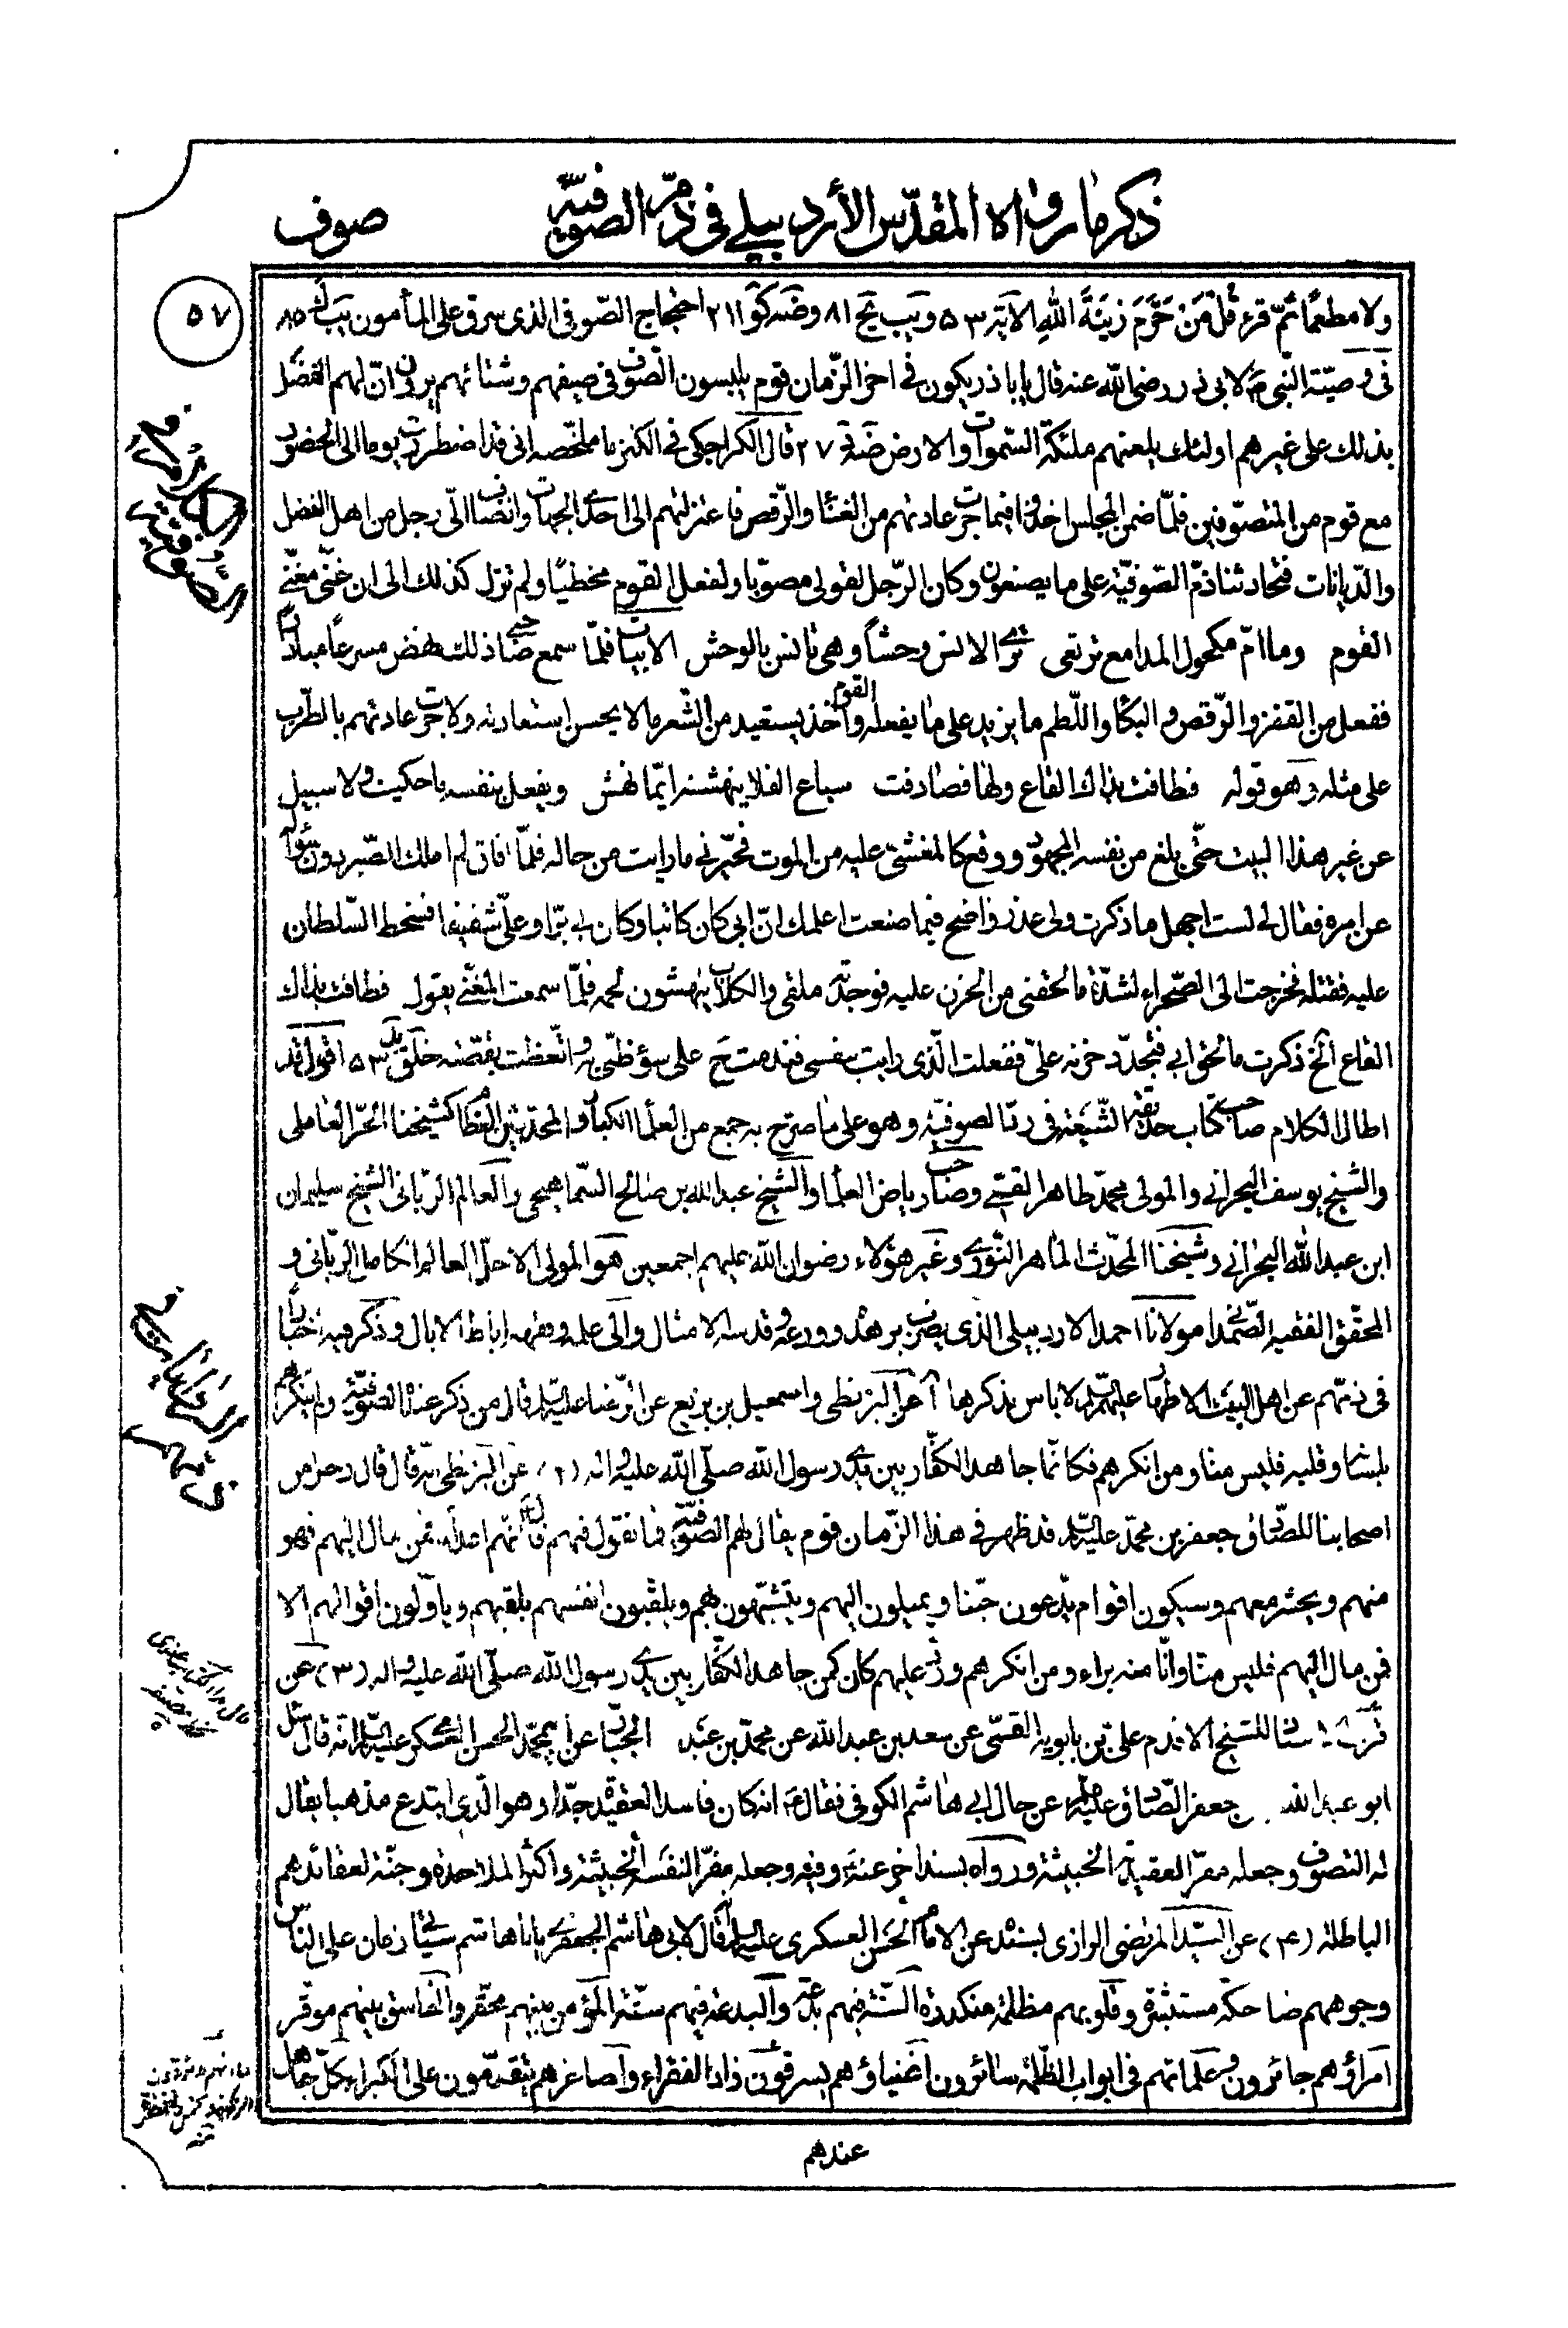 ذكر ما رواه المقدّس الأردبيلي في ذمّ الصوفيّة
صوف
٥٧
ولا مطعمًا ثمّ قرء قُلْ مَنْ حَرَّمَ زينَةَ اللهِ الآية ٥٣ ويب يح ٨١ وضه كو ٢١١ احتجاج الصّوفي الذى سرق على المأمون يب ك ٨٥
في وصيّة النّبي ص لابي ذر رضى الله عنه قال يا با ذر يكون في اخر الزّمان قوم يلبسون الصّوف في صيفهم وشتائهم يرون انّ لهم الفضل
بذلك على غيرهم اولئك يلعنهم ملئكة السّموات والارض ضه ٢٧ قال الكراجكى في الكنز ما ملخّصه انى قد اضطررت يوما الى الحضور
مع قوم من المتصوّفين فلمّا ضمن المجلس اخذوا فيما جرت عادتهم من الغنا والرّقص فاعتزلتهم الى احدى الجهات وانضاف الىّ رجل من اهل الفضل
والدّيانات فتحادثنا ذمّ الصّوفيّة على ما يصنعون وكان الرّجل لقولى مصوّبا ولفعل القوم مخطيًا ولم نزل كذلك الى ان غنّى مغنّى
القوم وما امّ مكحول المدامع ترتعى ترى الانس وحشاً وهى تانس بالوحش الابيات فلمّا سمع صاحبى ذلك نهض مسرعاً مبادرًا
ففعل من القفز والرّقص والبكا واللّطم ما يزيد على ما يفعله القوم واخذ يستعيد من الشّعر ما لا يحسن استعادته ولا جرت عادتهم بالطّرب
على مثله وهو قوله فطافت بذاك القاع ولها فصادفت سباع الفلا ينهشنه ايّما نهش ويفعل بنفسه ما حكيت ولا سبيل
عن غير هذا البيت حتّى بلغ من نفسه المجهود ووقع كالمغشى عليه من الموت فحيّرني ما رايت من حاله فلمّا افاق لم املك الصّبر دون سؤاله
عن امره فقال لى لست اجهل ما ذكرت ولى عذر واضح فيما صنعت اعلمك انّ ابى كان كاتبا وكان بى برّا وعلىّ شفيقا فسخط السّلطان
عليه فقتله فخرجت الى الصّحراء لشدّة ما لحقنى من الحزن عليه فوجدته ملقى والكلاب ينهشون لحمه فلمّا سمعت المغنّى يقول فطافت بذاك
القاع الخ ذكرت ما لحق ابي فتجدّد حزنه علىّ ففعلت الّذى رايت بنفسى فندمت ح على سؤ ظنّى به واتّعظت بقصّته خلق يك ٥٣ اقول قد
اطال الكلام صاحب كتاب حديقة الشّيعة في ردّ الصوفيّة وهو على ما صرّح به جمع من العلما الكبار والمحدّثين العظام كشيخنا الحرّ العاملى
والشيخ يوسف البحرانى والمولى محمّد طاهر القمّى وصاحب رياض العلما والشيخ عبد الله بن صالح السّماهيجى والعالم الرّبّانى الشيخ سليمان
ابن عبد الله البحرانى وشيخنا المحدّث الماهر النّورى وغير هؤلاء رضوان الله عليهم اجمعين هو المولى الاجلّ العالم الكامل الرّبّانى و
المحقّق الفقيه الصّمدانى مولانا احمد الاردبيلى الذى يضرب بزهده وورعه وقدسه الامثال والى علمه وفقهه اباط الابال وذكر فيه اخبارًا
في ذمّهم عن اهل البيت الاطهار عليهم السّلام لا باس بذكرها آ عن البزنطى واسمعيل بن بزيع عن الرّضا عليه السلم قال من ذكر عنده الصّوفيّة ولم ينكرهم
بلسانه وقلبه فليس منّا ومن انكرهم فكانّما جاهد الكفّار بين يدى رسول الله صلّى الله عليه واله (٢) عن البزنطى انّه قال قال رجل من
اصحابنا للصّادق جعفر بن محمّد عليه السلم قد ظهر في هذا الزّمان قوم يقال لهم الصّوفيّة فما تقول فيهم قال انّهم اعداؤنا فمن مال اليهم فهو
منهم ويحشر معهم وسيكون اقوام يدّعون حبّنا ويميلون اليهم ويتشبّهون بهم ويلقّبون انفسهم بلقبهم ويأوّلون اقوالهم الا
فمن مال اليهم فليس منّا وانّا منه براء ومن انكرهم وردّ عليهم كان كمن جاهد الكفّار بين يدى رسول الله صلّى الله عليه واله (٣) عن
للشيخ الاقدم علىّ بن بابويه القمّى عن سعد بن عبد الله عن محمّد بن عبد الجبّار عن ابى محمّد الحسن العسكرى عليه السّلام انّه قال سئل
ابو عبد الله جعفر الصّادق عليه السلم عن حال ابى هاشم الكوفى فقال ع انه كان فاسد العقيدة جدّا وهو الّذى ابتدع مذهبا يقال
له التصوّف وجعله مفرّا لعقيدته الخبيثة ورواه بسند اخر عنه ع وفيه وجعله مفرّا لنفسه الخبيثة واكثر الملاحدة وجنّة لعقائدهم
الباطلة (٤) عن السّيّد المرتضى الرازى بسنده عن الامام الحسن العسكرى عليه السلم انّه قال لابى هاشم الجعفرى يا با هاشم سيأتى زمان على النّاس
وجوههم ضاحكة مستبشرة وقلوبهم مظلمة منكدرة السّنّة فيهم بدعة والبدعة فيهم سنّة المؤمن بينهم محقّر والفاسق بينهم موقّر
امراؤهم جائرون وعلمائهم في ابواب الظّلمة سائرون اغنياؤهم يسرقون زاد الفقراء واصاغرهم يتقدّمون على الكبراء كلّ جاهل
عندهم